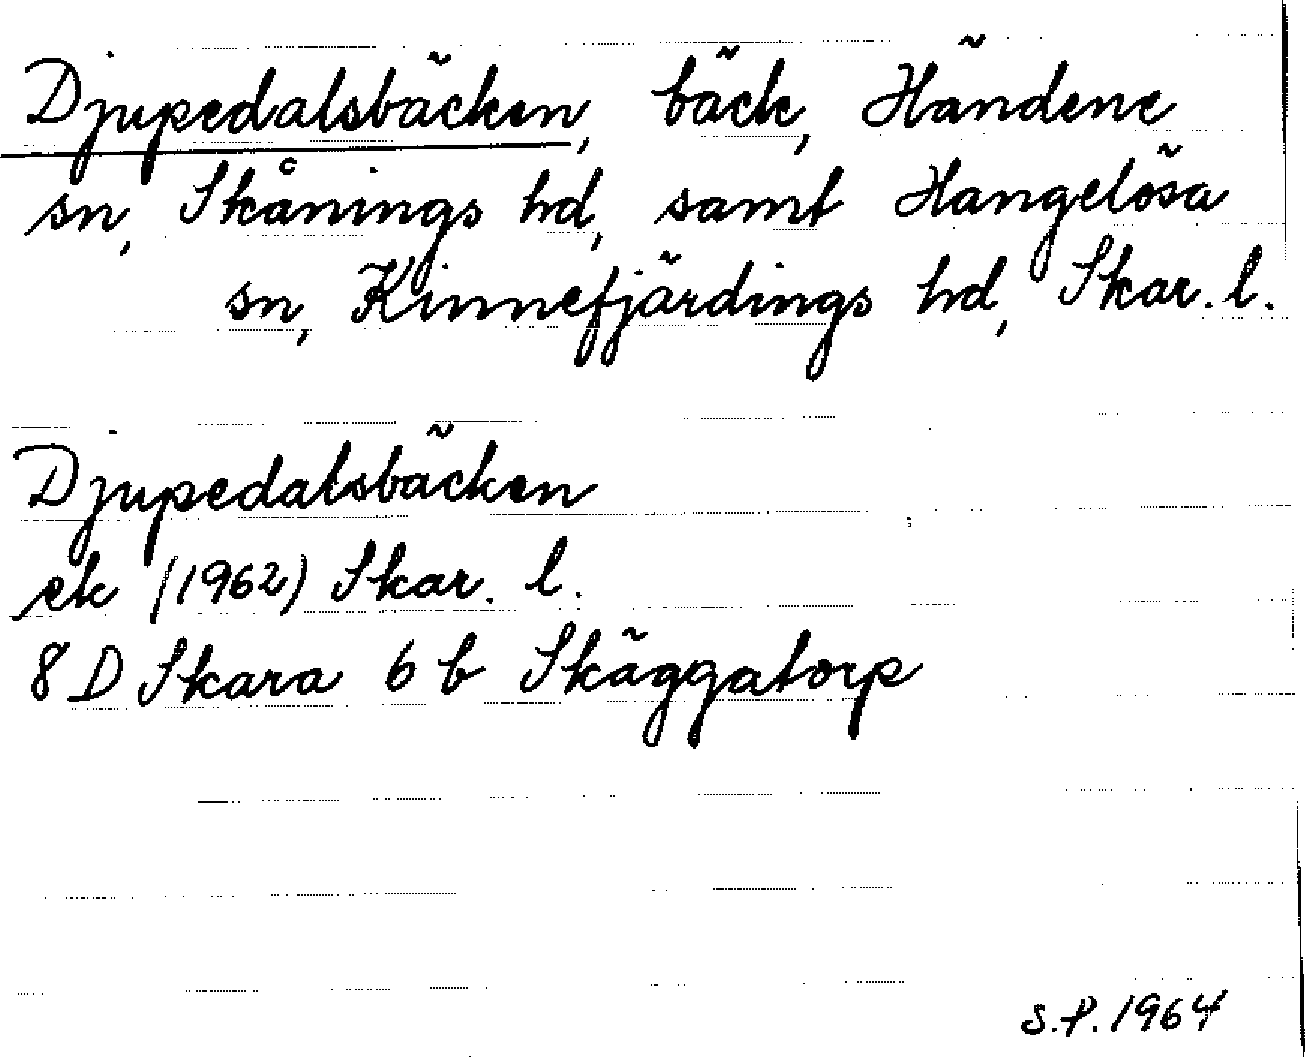 Djupedalsbäcken, bäck, Händene
sn, Skånings hd, samt Hangelösa
sn, Kinnefjärdings hd, Skar. l.
Djupedalsbäcken
ek (1962) Skar. l.
8 D Skara 6 b Skäggatorp
S.P. 1964